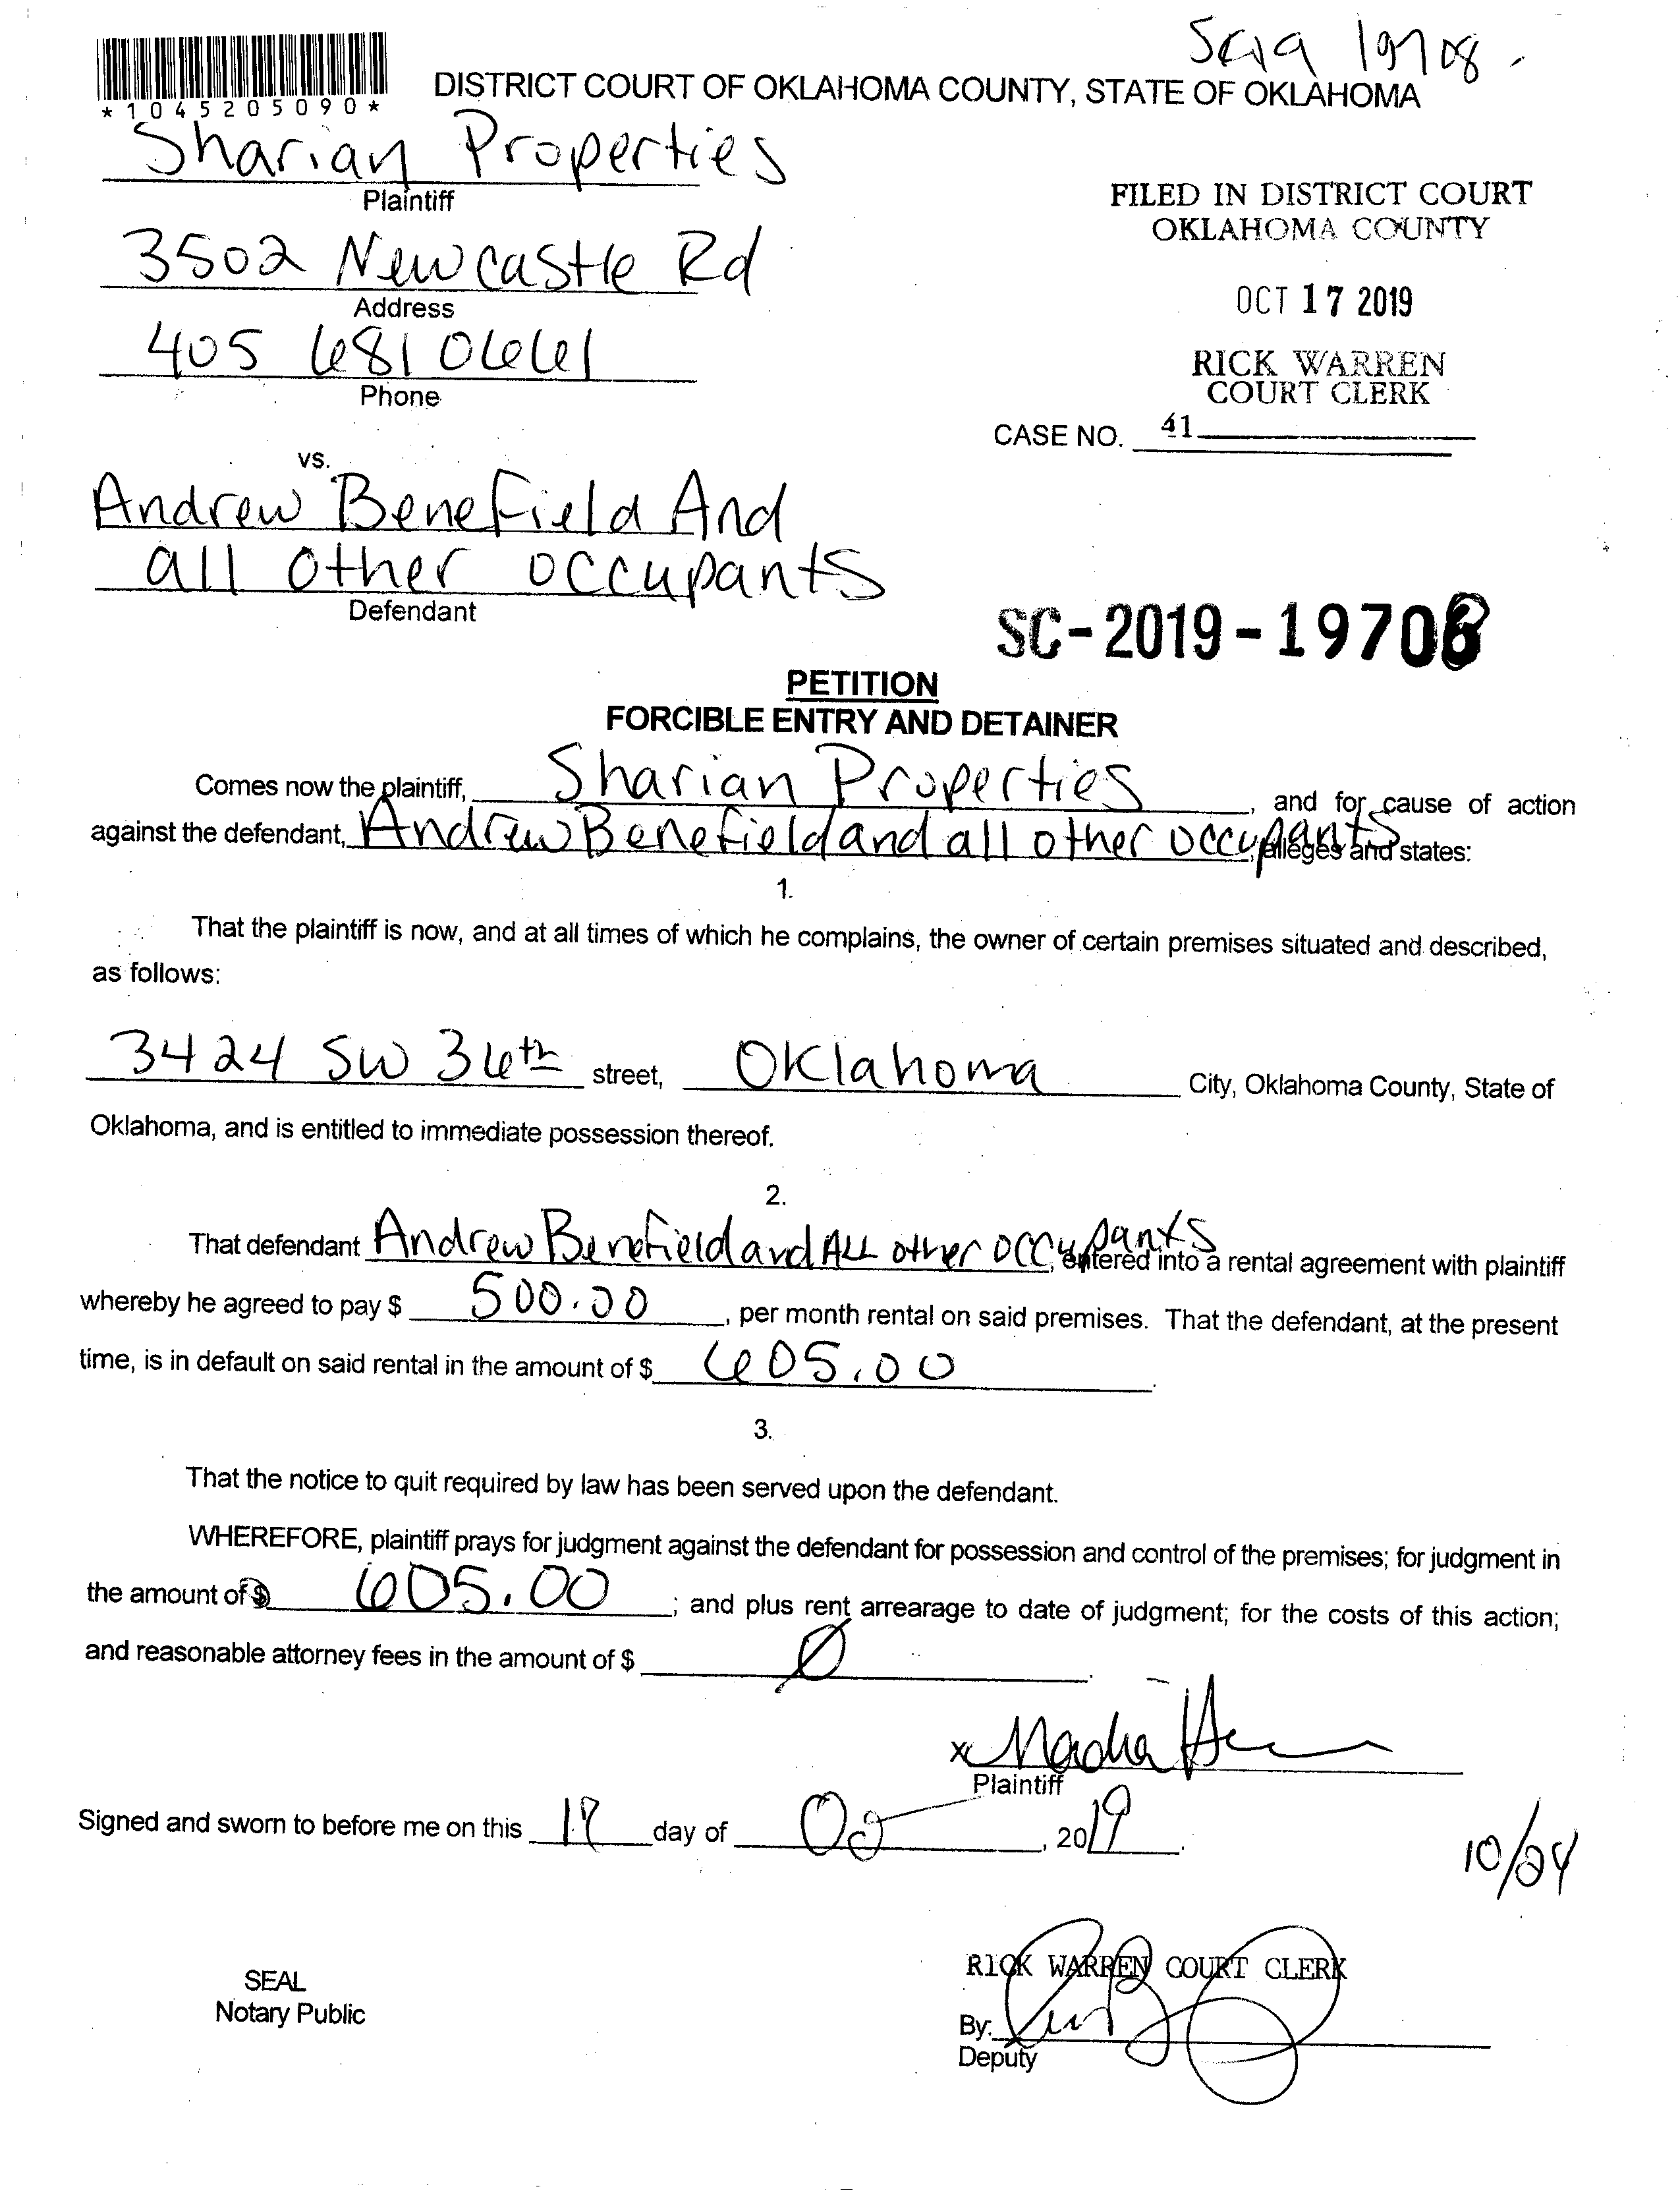 SC19 19708.
*1045205090*
DISTRICT COURT OF OKLAHOMA COUNTY, STATE OF OKLAHOMA
Sharian Properties
Plaintiff
FILED IN DISTRICT COURT
OKLAHOMA COUNTY
3502 Newcastle Rd
Address
OCT 17 2019
405 681 0661
Phone
RICK WARREN
COURT CLERK
CASE NO. 41
vs.
Andrew Benefield And
all other occupants
Defendant
SC-2019-19708
PETITION
FORCIBLE ENTRY AND DETAINER
Comes now the plaintiff, Sharian Properties, and for cause of action
against the defendant, Andrew Benefield and all other occupants, alleges and states:
1.
That the plaintiff is now, and at all times of which he complains, the owner of certain premises situated and described,
as follows:
3424 SW 36th street, Oklahoma City, Oklahoma County, State of
Oklahoma, and is entitled to immediate possession thereof.
2.
That defendant Andrew Benefield and ALL other occupants, entered into a rental agreement with plaintiff
whereby he agreed to pay $ 500.00, per month rental on said premises. That the defendant, at the present
time, is in default on said rental in the amount of $ 605.00.
3.
That the notice to quit required by law has been served upon the defendant.
WHEREFORE, plaintiff prays for judgment against the defendant for possession and control of the premises; for judgment in
the amount of $ 605.00; and plus rent arrearage to date of judgment; for the costs of this action;
and reasonable attorney fees in the amount of $ Ø.
x Nadia
Plaintiff
Signed and sworn to before me on this 17 day of , 2019.
10/24
SEAL
Notary Public
RICK WARREN COURT CLERK
By:
Deputy